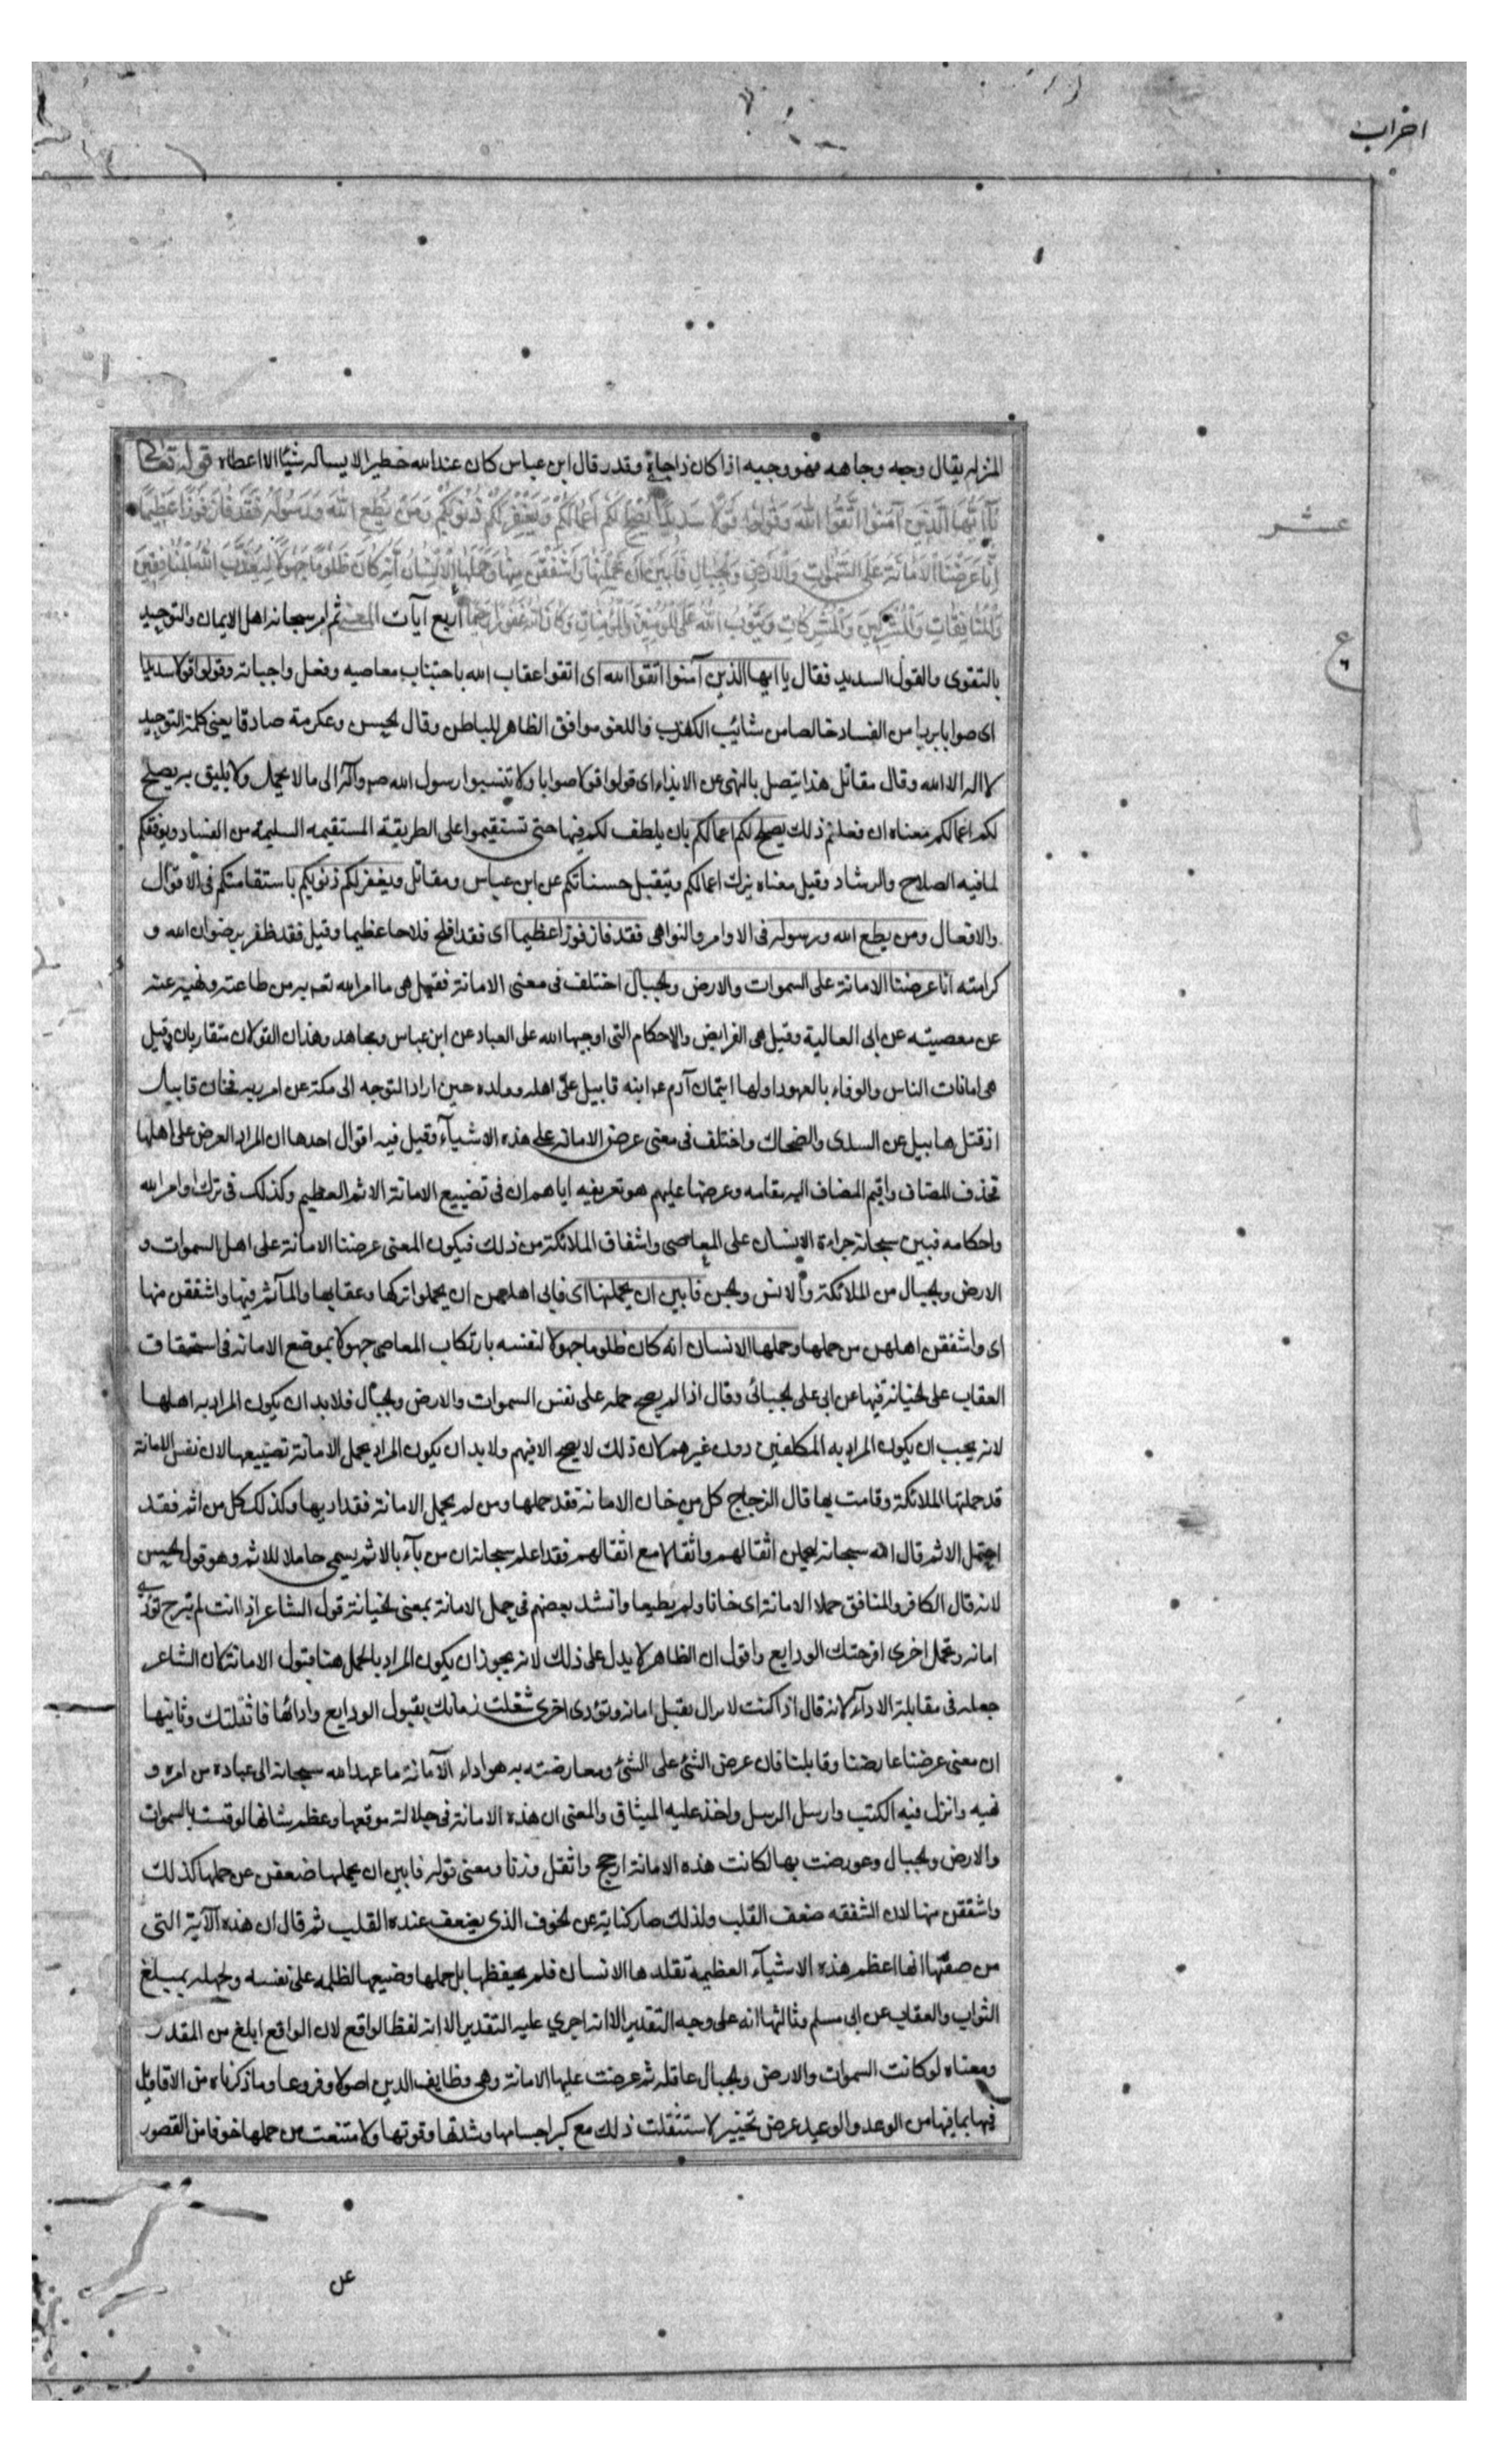 احزاب
المنزله يقال وجه وجاهه فهو وجيه اذا كان ذا جاه وقدر قال ابن عباس كان عند الله خطيرا لا يساله شيئا الا اعطاه قوله تعالى
يَآ اَيُّهَا الَّذينَ آمَنُوا اتَّقُوا اللّٰهَ وَقُولُوا قَوْلًا سَديدًا يُصْلِحْ لَكُمْ اَعْمَالَكُمْ وَيَغْفِرْ لَكُمْ ذُنُوبَكُمْ وَمَنْ يُطِعِ اللّٰهَ وَرَسُولَهُ فَقَدْ فَازَ فَوْزًا عَظيمًا
عشر
اِنَّا عَرَضْنَا الْاَمَانَةَ عَلَى السَّمٰوَاتِ وَالْاَرْضِ وَالْجِبَالِ فَاَبَيْنَ اَنْ يَحْمِلْنَهَا وَاَشْفَقْنَ مِنْهَا وَحَمَلَهَا الْاِنْسَانُ اِنَّهُ كَانَ ظَلُومًا جَهُولًا لِيُعَذِّبَ اللّٰهُ الْمُنَافِقينَ
وَالْمُنَافِقَاتِ وَالْمُشْرِكينَ وَالْمُشْرِكَاتِ وَيَتُوبَ اللّٰهُ عَلَى الْمُؤْمِنينَ وَالْمُؤْمِنَاتِ وَكَانَ اللّٰهُ غَفُورًا رَحيمًا اربع آيات المعنى ثم امر سبحانه اهل الايمان والتوحيد
ع
بالتقوى والقول السديد فقال يا ايها الذين آمنوا اتقوا الله اى اتقوا عقاب الله باجتناب معاصيه وفعل واجباته وقولوا قولا سديدا
اى صوابا بريا من الفساد خالصا من شائب الكذب واللغو موافق الظاهر للباطن وقال الحسن وعكرمة صادقا يعنى كلمة التوحيد
لا اله الا الله وقال مقاتل هذا يتصل بالنهى عن الايذاء اى قولوا قولا صوابا ولا تنسبوا رسول الله ص وآله الى ما لا يجمل ولا يليق به يصلح
لكم اعمالكم معناه ان فعلتم ذلك يصلح لكم اعمالكم بان يلطف لكم فيها حتى تستقيموا على الطريقة المستقيمه السليمة من الفساد ويوفقكم
لما فيه الصلاح والرشاد وقيل معناه يزك اعمالكم ويتقبل حسناتكم عن ابن عباس ومقاتل ويغفر لكم ذنوبكم باستقامتكم فى الاقوال
والافعال ومن يطع الله ورسوله فى الاوامر والنواهى فقد فاز فوزا عظيما اى فقد افلح فلاحا عظيما وقيل فقد ظفر برضوان الله و
كرامته انا عرضنا الامانة على السموات والارض والجبال اختلف فى معنى الامانة فقيل هى ما امر الله تعـ به من طاعته ونهى عنه
عن معصيته عن ابى العالية وقيل هى الفرايض والاحكام التى اوجبها الله على العباد عن ابن عباس ومجاهد وهذان القولان متقاربان وقيل
هى امانات الناس والوفاء بالعهود اولها ايتمان آدم ع ابنه قابيل على اهله وولده حين اراد التوجه الى مكة عن امر ربه فخان قابيل
اذ قتل هابيل عن السدى والضحاك واختلف فى معنى عرض الامانة على هذه الاشيآء وقيل فيه اقوال احدها ان المراد العرض على اهلها
فحذف المضاف واقيم المضاف اليه مقامه وعرضها عليهم هو تعريفه اياهم ان فى تضييع الامانة الاثم العظيم وكذلك فى ترك اوامر الله
واحكامه فبين سبحانه جراءة الانسان على المعاصى واشفاق الملائكة من ذلك فيكون المعنى عرضنا الامانة على اهل السموات و
الارض والجبال من الملائكة والانس والجن فابين ان يحملنها اى فابى اهلهن ان يحملوا تركها وعقابها والمآثم فيها واشفقن منها
اى واشفقن اهلهن من حملها وحملها الانسان انه كان ظلوما جهولا لنفسه بارتكاب المعاصى جهولا بموضع الامانة فى استحقاق
العقاب على الخيانة فيها عن ابى على الجبائى وقال اذا لم يصح حمله على نفس السموات والارض والجبال فلا بد ان يكون المراد به اهلها
لانه يجب ان يكون المراد به المكلفين دون غيرهم لان ذلك لا يصح الا فيهم ولا بد ان يكون المراد بحمل الامانة تضييعها لان نفس الامانة
قد حملتها الملائكة وقامت بها قال الزجاج كل من خان الامانة فقد حملها ومن لم يحمل الامانة فقد اديها وكذلك كل من اثم فقد
احتمل الاثم قال الله سبحانه ليحملن اثقالهم واثقالا مع اثقالهم فقد اعلم سبحانه ان من بآء بالاثم يسمى حاملا للاثم وهو قول الحسن
لانه قال الكافر والمنافق حملا الامانة اى خانا ولم يطيعا وانشد بعضهم فى حمل الامانة بمعنى الخيانة قول الشاعر اذا انت لم تبرح تؤدى
امانه وتحمل اخرى افرحتك الودايع واقول ان الظاهر لا يدل على ذلك لانه يجوز ان يكون المراد بالحمل هنا قبول الامانة لان الشاعر
جعله فى مقابلة الادآء لانه قال اذا كنت لا تزال تقبل امانه وتؤدى اخرى شغلت نفسك بقبول الودايع وادائها فاثقلتك وثانيها
ان معنى عرضنا عارضنا وقابلنا فان عرض الشئ على الشئ ومعارضته به هو اداء الامانة ما عهد الله سبحانه الى عباده من امره و
نهيه وانزل فيه الكتب وارسل الرسل واخذ عليه الميثاق والمعنى ان هذه الامانة فى جلالة موقعها وعظم شانها لو قيست بالسموات
والارض والجبال وعورضت بها لكانت هذه الامانة ارجح واثقل وزنا ومعنى قوله فابين ان يحملنها ضعفن عن حملها كذلك
واشفقن منها لان الشفقه ضعف القلب ولذلك صار كناية عن الخوف الذى يضعف عنده القلب ثم قال ان هذه الآية التى
من صفتها انها اعظم هذه الاشيآء العظيمة تقلدها الانسان فلم يحفظها بل حملها وضيعها لظلمه على نفسه ولجهله بمبلغ
الثواب والعقاب عن ابى مسلم وثالثها انه على وجه التقدير الا انه اجرى عليه التقدير الا انه لفظ الواقع لان الواقع ابلغ من المقدر
ومعناه لو كانت السموات والارض والجبال عاقلة ثم عرضت عليها الامانة وهى وظايف الدين اصولا وفروعا وما ذكرناه من الاقاويل
فيها بما فيها من الوعد والوعيد عرض تخيير لاستثقلت ذلك مع كبر اجسامها وشدتها وقوتها ولامتنعت من حملها خوفا من القصور
عن